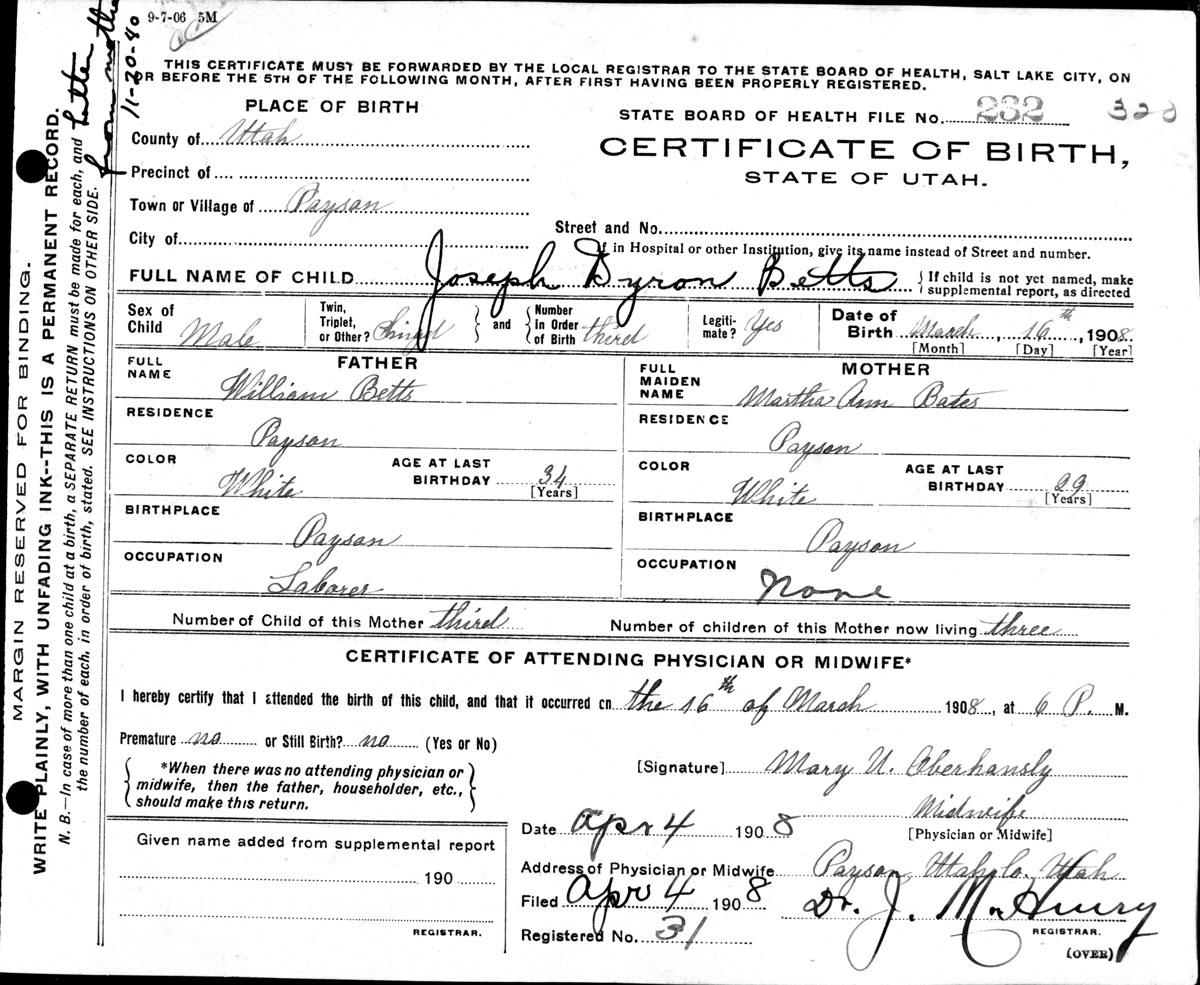 9-7-06 5M
THIS CERTIFICATE MUST BE FORWARDED BY THE LOCAL REGISTRAR TO THE STATE BOARD OF HEALTH, SALT LAKE CITY, ON
OR BEFORE THE 5TH OF THE FOLLOWING MONTH, AFTER FIRST HAVING BEEN PROPERLY REGISTERED.
PLACE OF BIRTH
STATE BOARD OF HEALTH FILE No. 232 328
County of Utah
CERTIFICATE OF BIRTH,
STATE OF UTAH.
Precinct of
Town or Village of Payson
Street and No.
City of
If in Hospital or other Institution, give its name instead of Street and number.
FULL NAME OF CHILD Joseph Byron Betts { If child is not yet named, make
supplemental report, as directed
Sex of Child Male
Twin, Triplet, or Other? Singl } and { Number In Order of Birth third
Legiti-mate? Yes
Date of Birth March 16th, 1908
[Month] [Day] [Year]
FATHER
FULL NAME William Betts
RESIDENCE Payson
COLOR White
AGE AT LAST BIRTHDAY 34 [Years]
BIRTHPLACE Payson
OCCUPATION Laborer
MOTHER
FULL MAIDEN NAME Martha Ann Bates
RESIDENCE Payson
COLOR White
AGE AT LAST BIRTHDAY 29 [Years]
BIRTHPLACE Payson
OCCUPATION None
Number of Child of this Mother third
Number of children of this Mother now living three
CERTIFICATE OF ATTENDING PHYSICIAN OR MIDWIFE*
I hereby certify that I attended the birth of this child, and that it occurred on the 16th of March 1908, at 6 P. M.
Premature no or Still Birth? no (Yes or No)
{ *When there was no attending physician or
midwife, then the father, householder, etc.,
should make this return. }
[Signature] Mary U. Oberhansly
Midwife
[Physician or Midwife]
Date Apr 4 1908
Address of Physician or Midwife Payson Utah Co. Utah
Filed Apr 4 1908
Dr. J. McHenry
REGISTRAR.
Registered No. 31
(OVER)
Given name added from supplemental report
190
REGISTRAR.
MARGIN RESERVED FOR BINDING.
WRITE PLAINLY, WITH UNFADING INK--THIS IS A PERMANENT RECORD.
N. B.—In case of more than one child at a birth, a SEPARATE RETURN must be made for each, and
the number of each, in order of birth, stated. SEE INSTRUCTIONS ON OTHER SIDE.
from
11-20-40